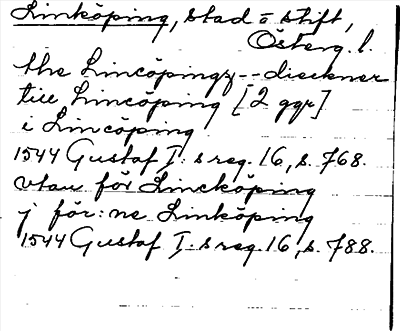 Linköping, stad o stift,
Österg. l.
the Lincöpingz -- dieckner
till Lincöping [2 ggr]
i Lincöping
1544 Gustaf I:s reg. 16, s. 768.
vtan för Lincköping
j för:ne Linköping
1544 Gustaf I:s reg. 16, s. 788.